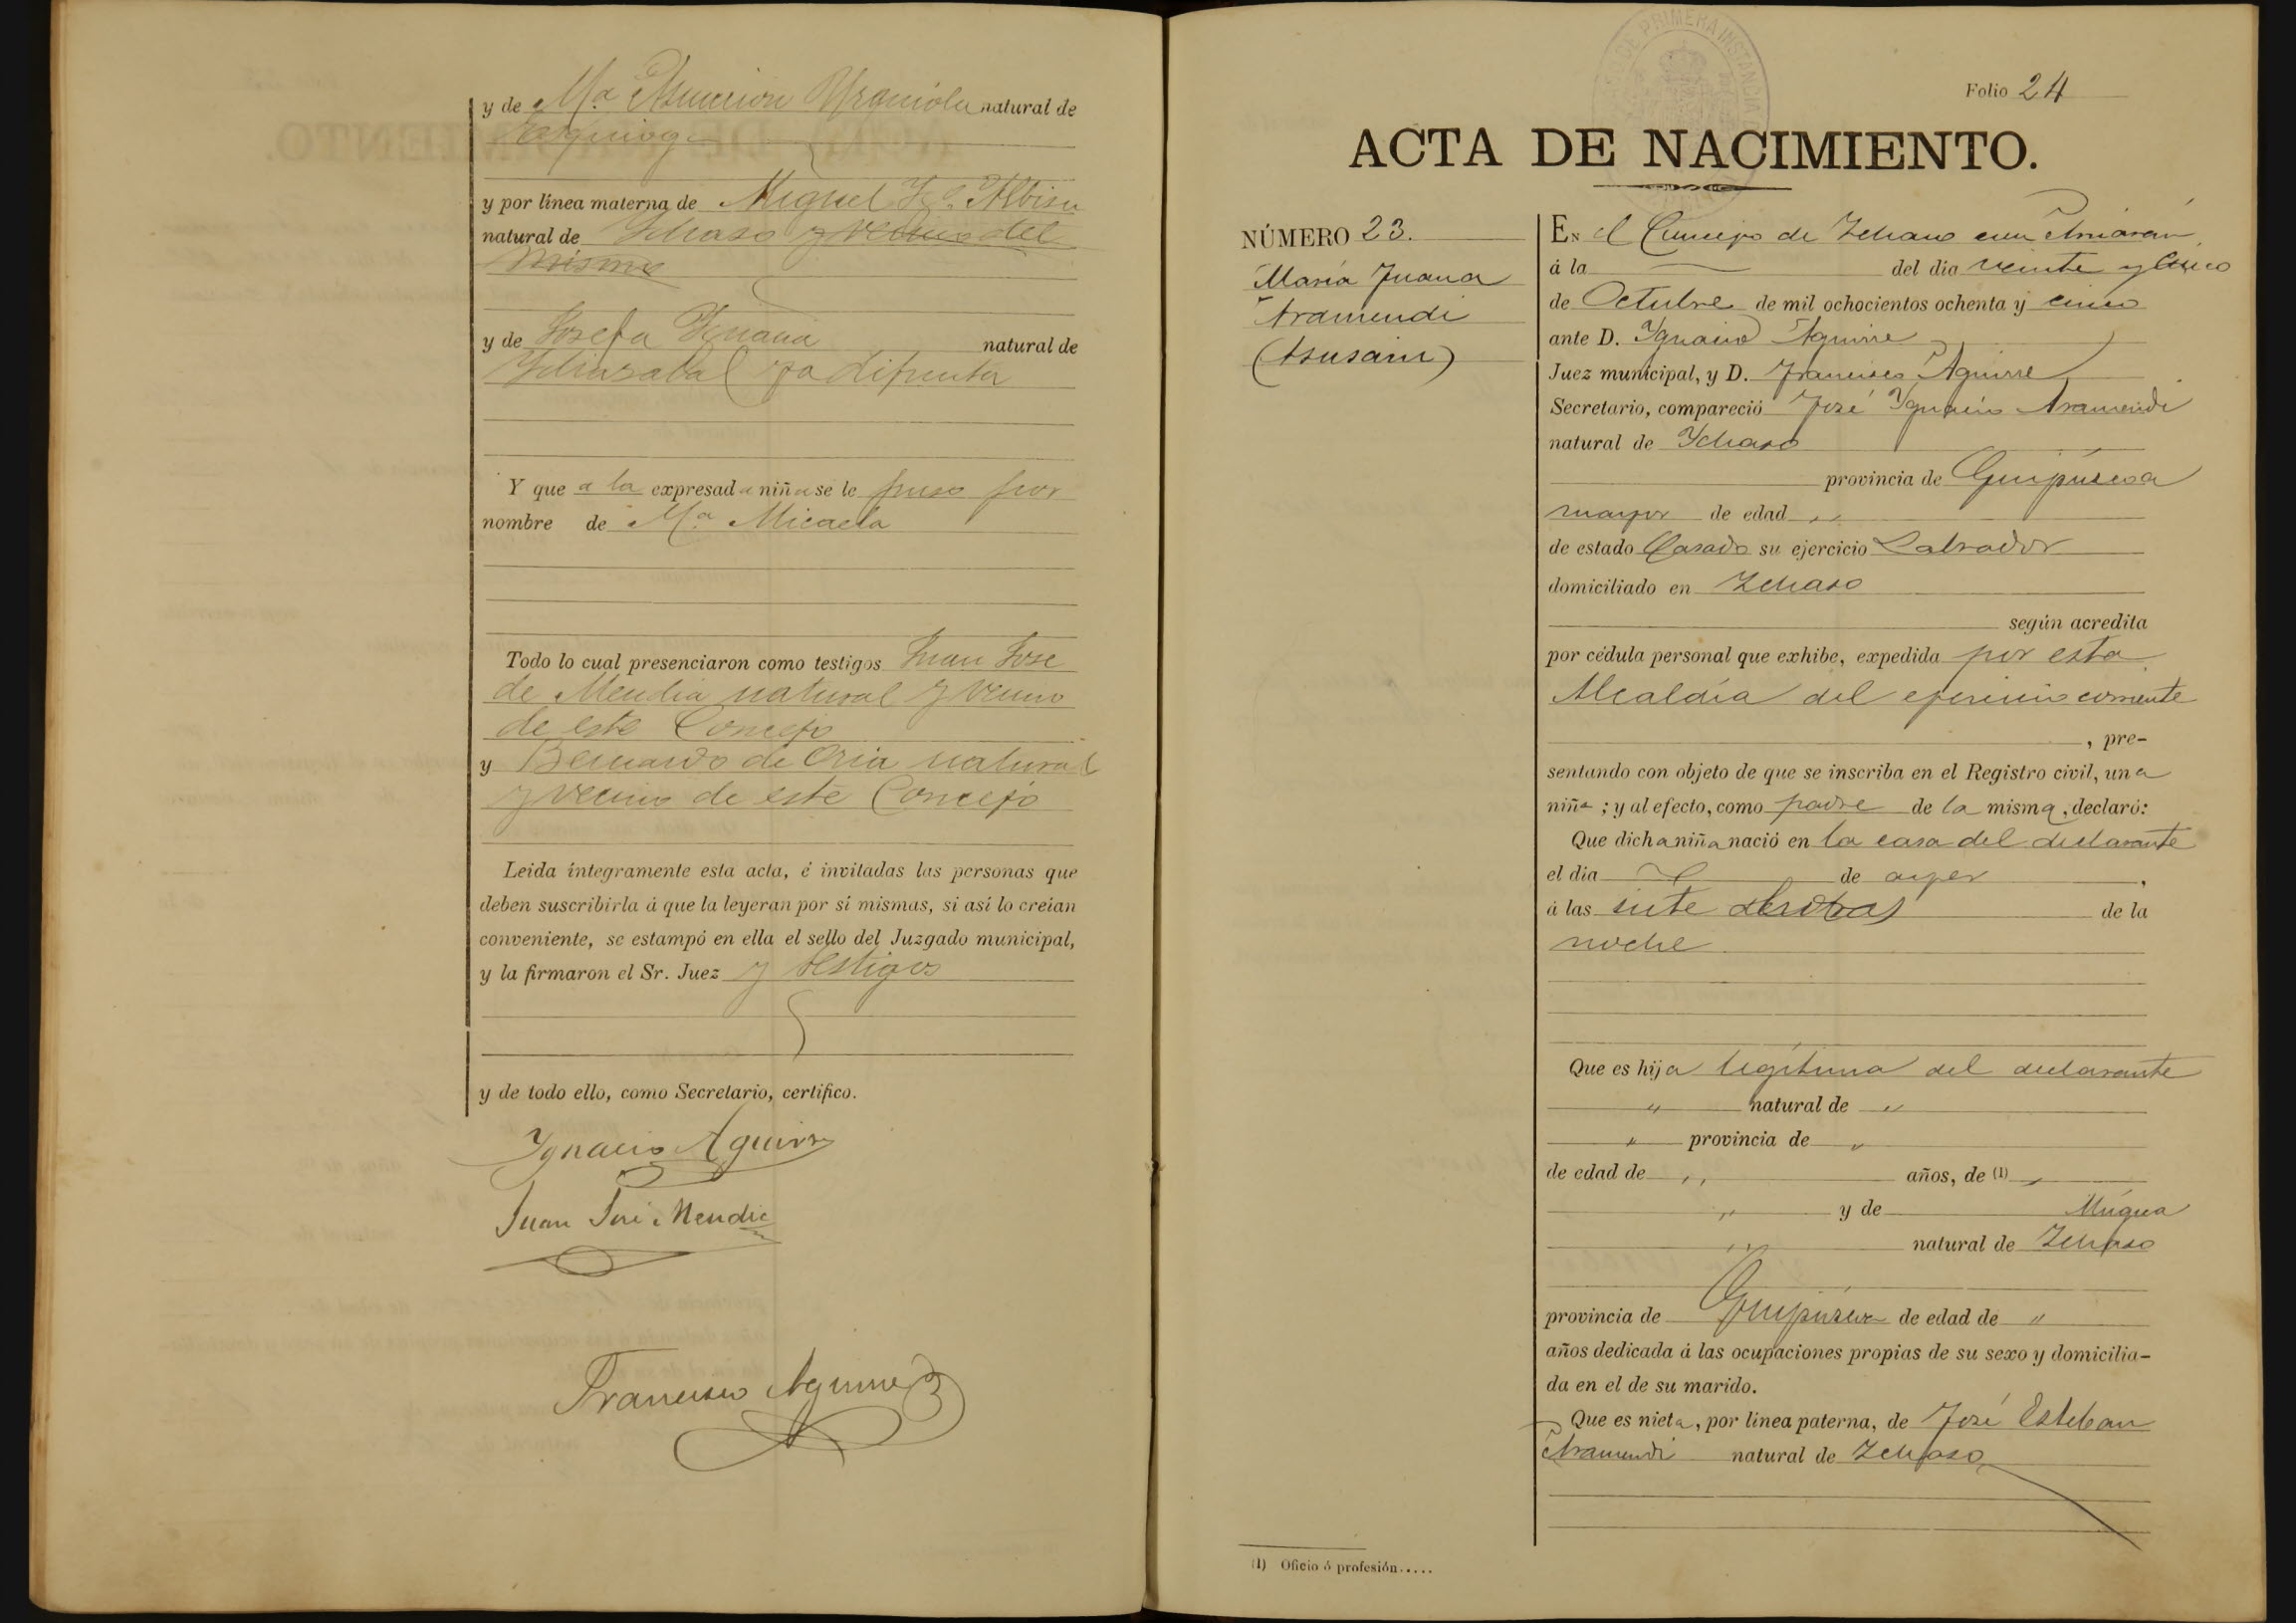 y de Mª Asuncion Urquiola natural de
Ezquioga
y por línea materna de Miguel Albisu
natural de Ichaso y vecino del
mismo
y de Josefa Ignacia natural de
Ichasabal ya difunta
Y que a la expresada niña se le puso por
nombre de Mª Micaela
Todo lo cual presenciaron como testigos Juan Jose
de Mendia natural y vecino
de este Concejo
y Bernardo de Oria natural
y vecino de este Concejo
Leida íntegramente esta acta, é invitadas las personas que
deben suscribirla á que la leyeran por sí mismas, si así lo creían
conveniente, se estampó en ella el sello del Juzgado municipal,
y la firmaron el Sr. Juez y testigos
y de todo ello, como Secretario, certifico.
Ygnacio Aguirre
Juan José Mendia
Francisco Aguirre
DE PRIMERA INSTANCIA
Folio 24
ACTA DE NACIMIENTO.
NÚMERO 23.
María Juana
Aramendi
(Asusain)
EN el Concejo de Ichaso con Arriarán
á la del dia veinte y cinco
de Octubre de mil ochocientos ochenta y cinco
ante D. Ygnacio Aguirre
Juez municipal, y D. Francisco Aguirre
Secretario, compareció José Ygnacio Aramendi
natural de Ychaso
provincia de Guipúscoa
mayor de edad "
de estado Casado su ejercicio Labrador
domiciliado en Ichaso
según acredita
por cédula personal que exhibe, expedida por esta
Alcaldía del ejercicio corriente
, pre-
sentando con objeto de que se inscriba en el Registro civil, una
niña; y al efecto, como padre de la misma, declaró:
Que dicha niña nació en la casa del declarante
el dia de ayer,
á las siete de la
noche
Que es hija legítima del declarante
" natural de "
" provincia de "
de edad de " años, de (1) "
" y de Múgica
" natural de Ichaso
provincia de Guipúscoa de edad de "
años dedicada á las ocupaciones propias de su sexo y domicilia-
da en el de su marido.
Que es nieta, por línea paterna, de José Esteban
Aramendi natural de Ichaso
(1) Oficio ó profesión.....